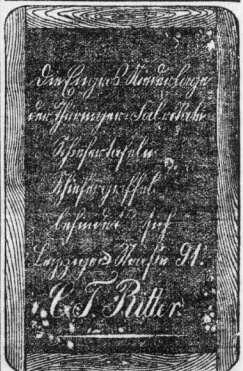 Die Engros Niederlage
der Thüringer Fabrikate
Schiefertafeln
Schiefergriffel
befindet sich
Leipziger Straße 91.
C. F. Ritter